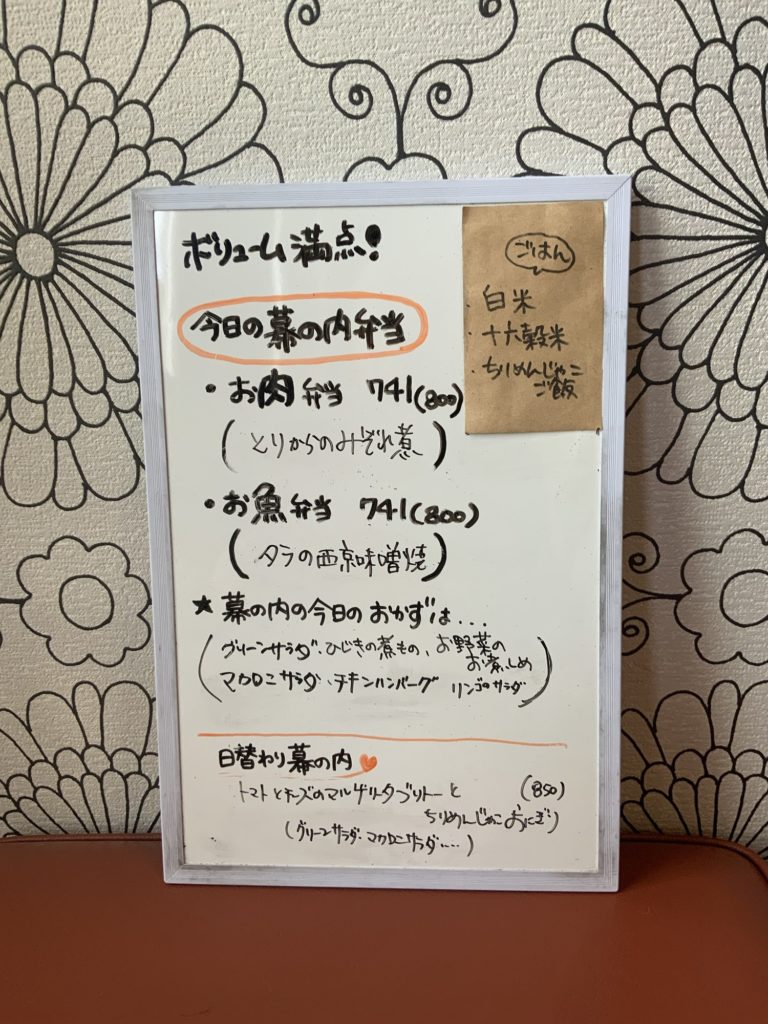 ボリューム満点!
今日の幕の内弁当
・お肉弁当 741(800)
(とりからのみぞれ煮)
・お魚弁当 741(800)
(タラの西京味噌焼)
★幕の内の今日のおかずは...
(グリーンサラダ・ひじきの煮もの、お野菜の
お煮しめ
マカロニサラダ、チキンハンバーグ リンゴのサラダ)
日替わり幕の内
トマトとチーズのマルゲリータブリトーと (850)
ちりめんじゃこおにぎり
(グリーンサラダ・マカロニサラダ....)
ごはん
・白米
・十六穀米
・ちりめんじゃこ
ご飯